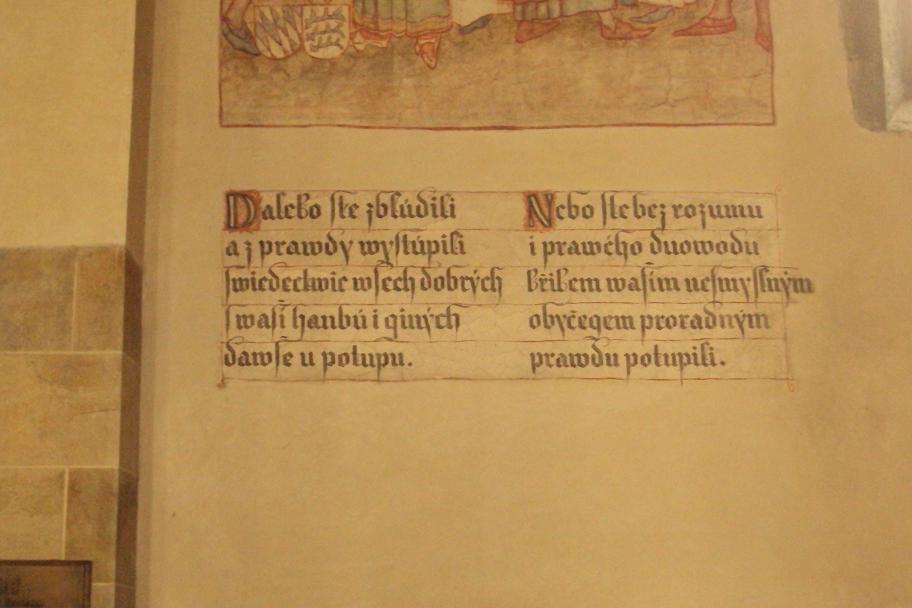 Daleko ste zblúdili
a z prawdy wystúpili
swiedectwie wsech dobrých
s wasi hanbú i giných
dawse u potupu.
Nebo ste bez rozumu
i prawého duowodu
křikem wasim nesmyslným
obyčegem proradným
prawdu potupili.